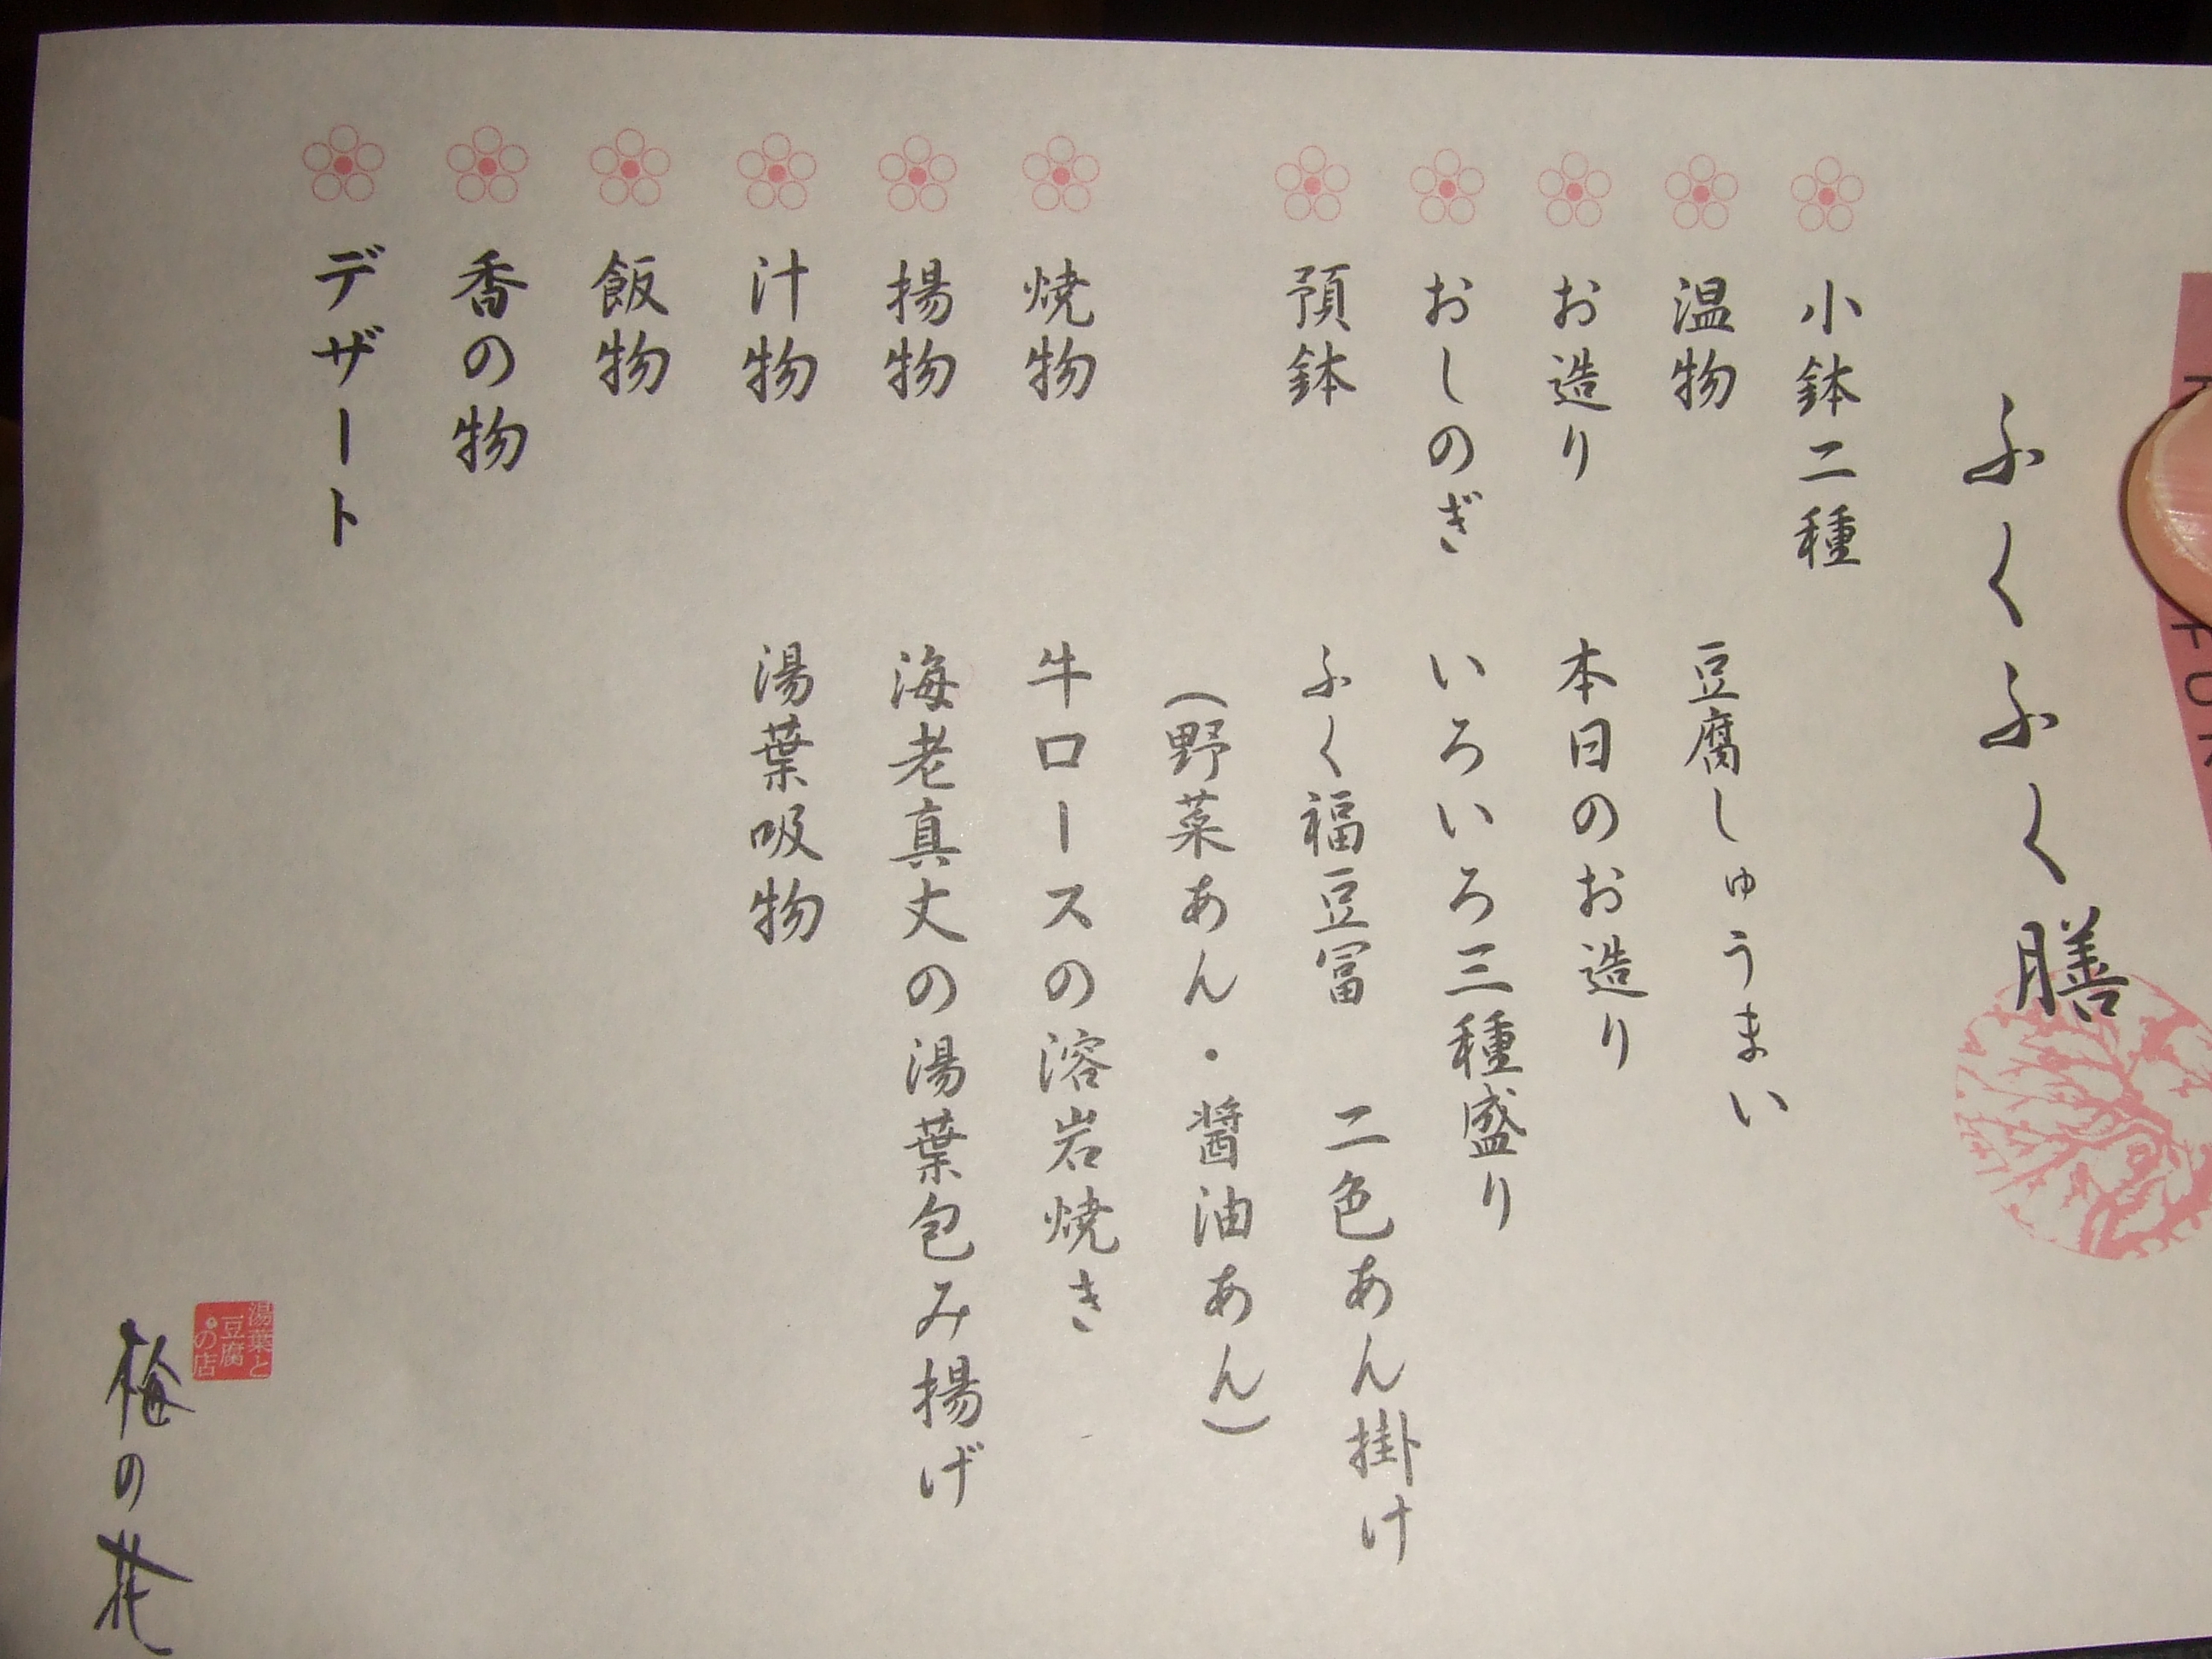 ふくふく膳
小鉢二種
温物 豆腐しゅうまい
お造り 本日のお造り
おしのぎ いろいろ三種盛り
預鉢 ふく福豆冨 二色あん掛け
(野菜あん・醤油あん)
焼物 牛ロースの溶岩焼き
揚物 海老真丈の湯葉包み揚げ
汁物 湯葉吸物
飯物
香の物
デザート
湯葉と
豆腐
の店
梅の花